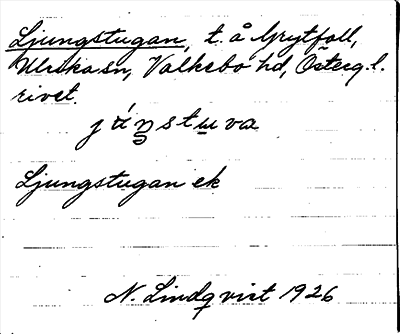 Ljungstugan, t. å Grytfall,
Ulrika sn, Valkebo hd, Österg. l.
rivet.
Ljungstugan ek
N. Lindqvist 1926